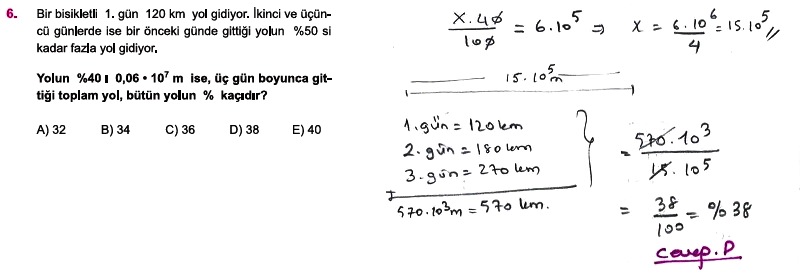 6. Bir bisikletli 1. gün 120 km yol gidiyor. İkinci ve üçün-
cü günlerde ise bir önceki günde gittiği yolun %50 si
kadar fazla yol gidiyor.
Yolun %40 ı 0,06 • 10⁷ m ise, üç gün boyunca git-
tiği toplam yol, bütün yolun % kaçıdır?
A) 32 B) 34 C) 36 D) 38 E) 40
x.40/100 = 6.10⁵ ⇒ x = 6.10⁶/4 = 15.10⁵//
15.10⁵m
1.gün = 120km
2.gün = 180 km
3.gün = 270 km
+
570.10³m = 570 km.
= 570.10³/15.10⁵
= 38/100 = %38
Cevep.D